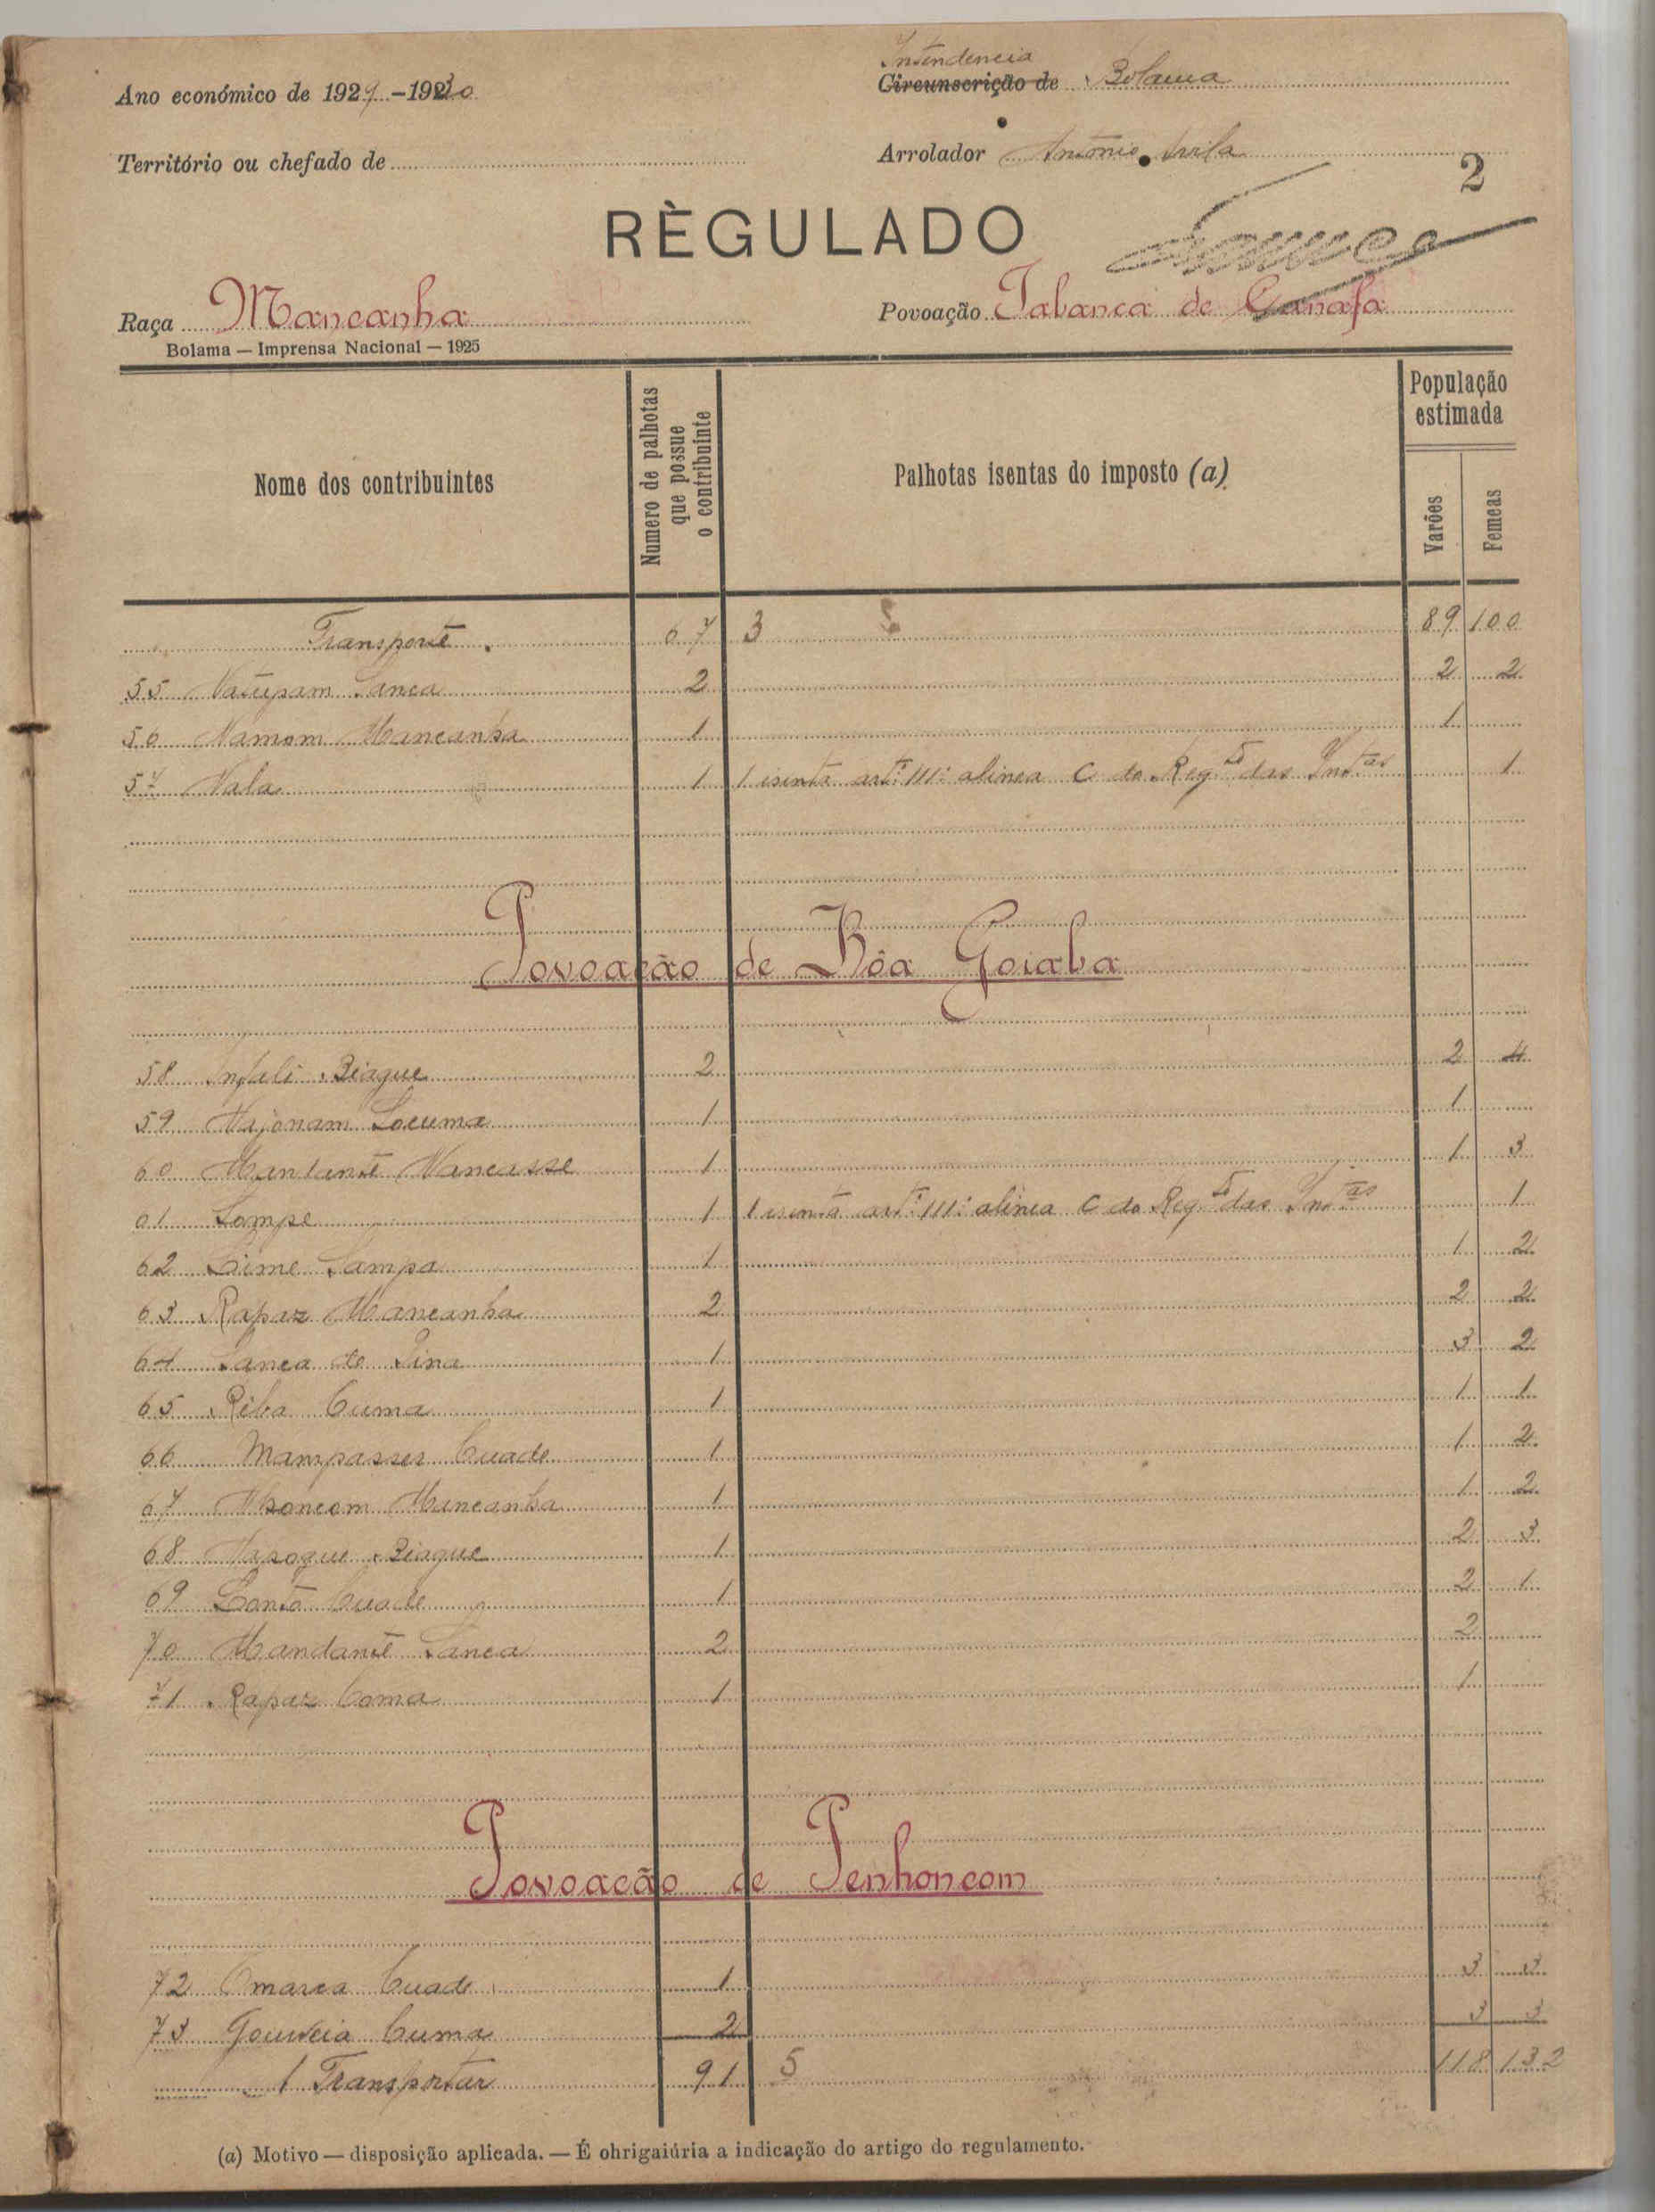 Intendencia
Ano económico de 1929-1930 Circunscrição de Bolama
Território ou chefado de Arrolador António Avila
2
RÈGULADO
Raça Mancanha Povoação Tabanca de Ganafa
Bolama — Imprensa Nacional — 1925
Nome dos contribuintes
Numero de palhotas que possue o contribuinte
Palhotas isentas do imposto (a)
População estimada
Varões
Femeas
Transporte 67 3 89 100
55 Natupam Sanca 2 2 2
56 Namom Mancanha 1 1
57 Nala 1 1 isenta artº 111º alinea C do Regto das Intas 1
Povoação de Bôa Goiaba
58 Infali Biague 2 2 4
59 Najonam Locuma 1 1
60 Mantante Nancasse 1 1 3
61 Lompe 1 1 isenta artº 111º alinea C do Regto das Intas 1
62 Lime Sampa 1 1 2
63 Rapaz Mancanha 2 2 2
64 Sanca de Lina 1 3 2
65 Riba Cuma 1 1 1
66 Mampasser Cuade 1 1 2
67 Moncom Mancanha 1 1 2
68 Nasogue Biague 1 2 3
69 Cuade 1 2 1
70 Mandante Sanca 2 2
71 Rapaz Coma 1 1
Povoacão de Penhoncom
72 Omarca Cuade 1 3 3
73 Gouveia Cuma 2 3 3
A Transportar 91 5 118 132
(a) Motivo — disposição aplicada. — É ohrigaiúria a indicação do artigo do regulamento.